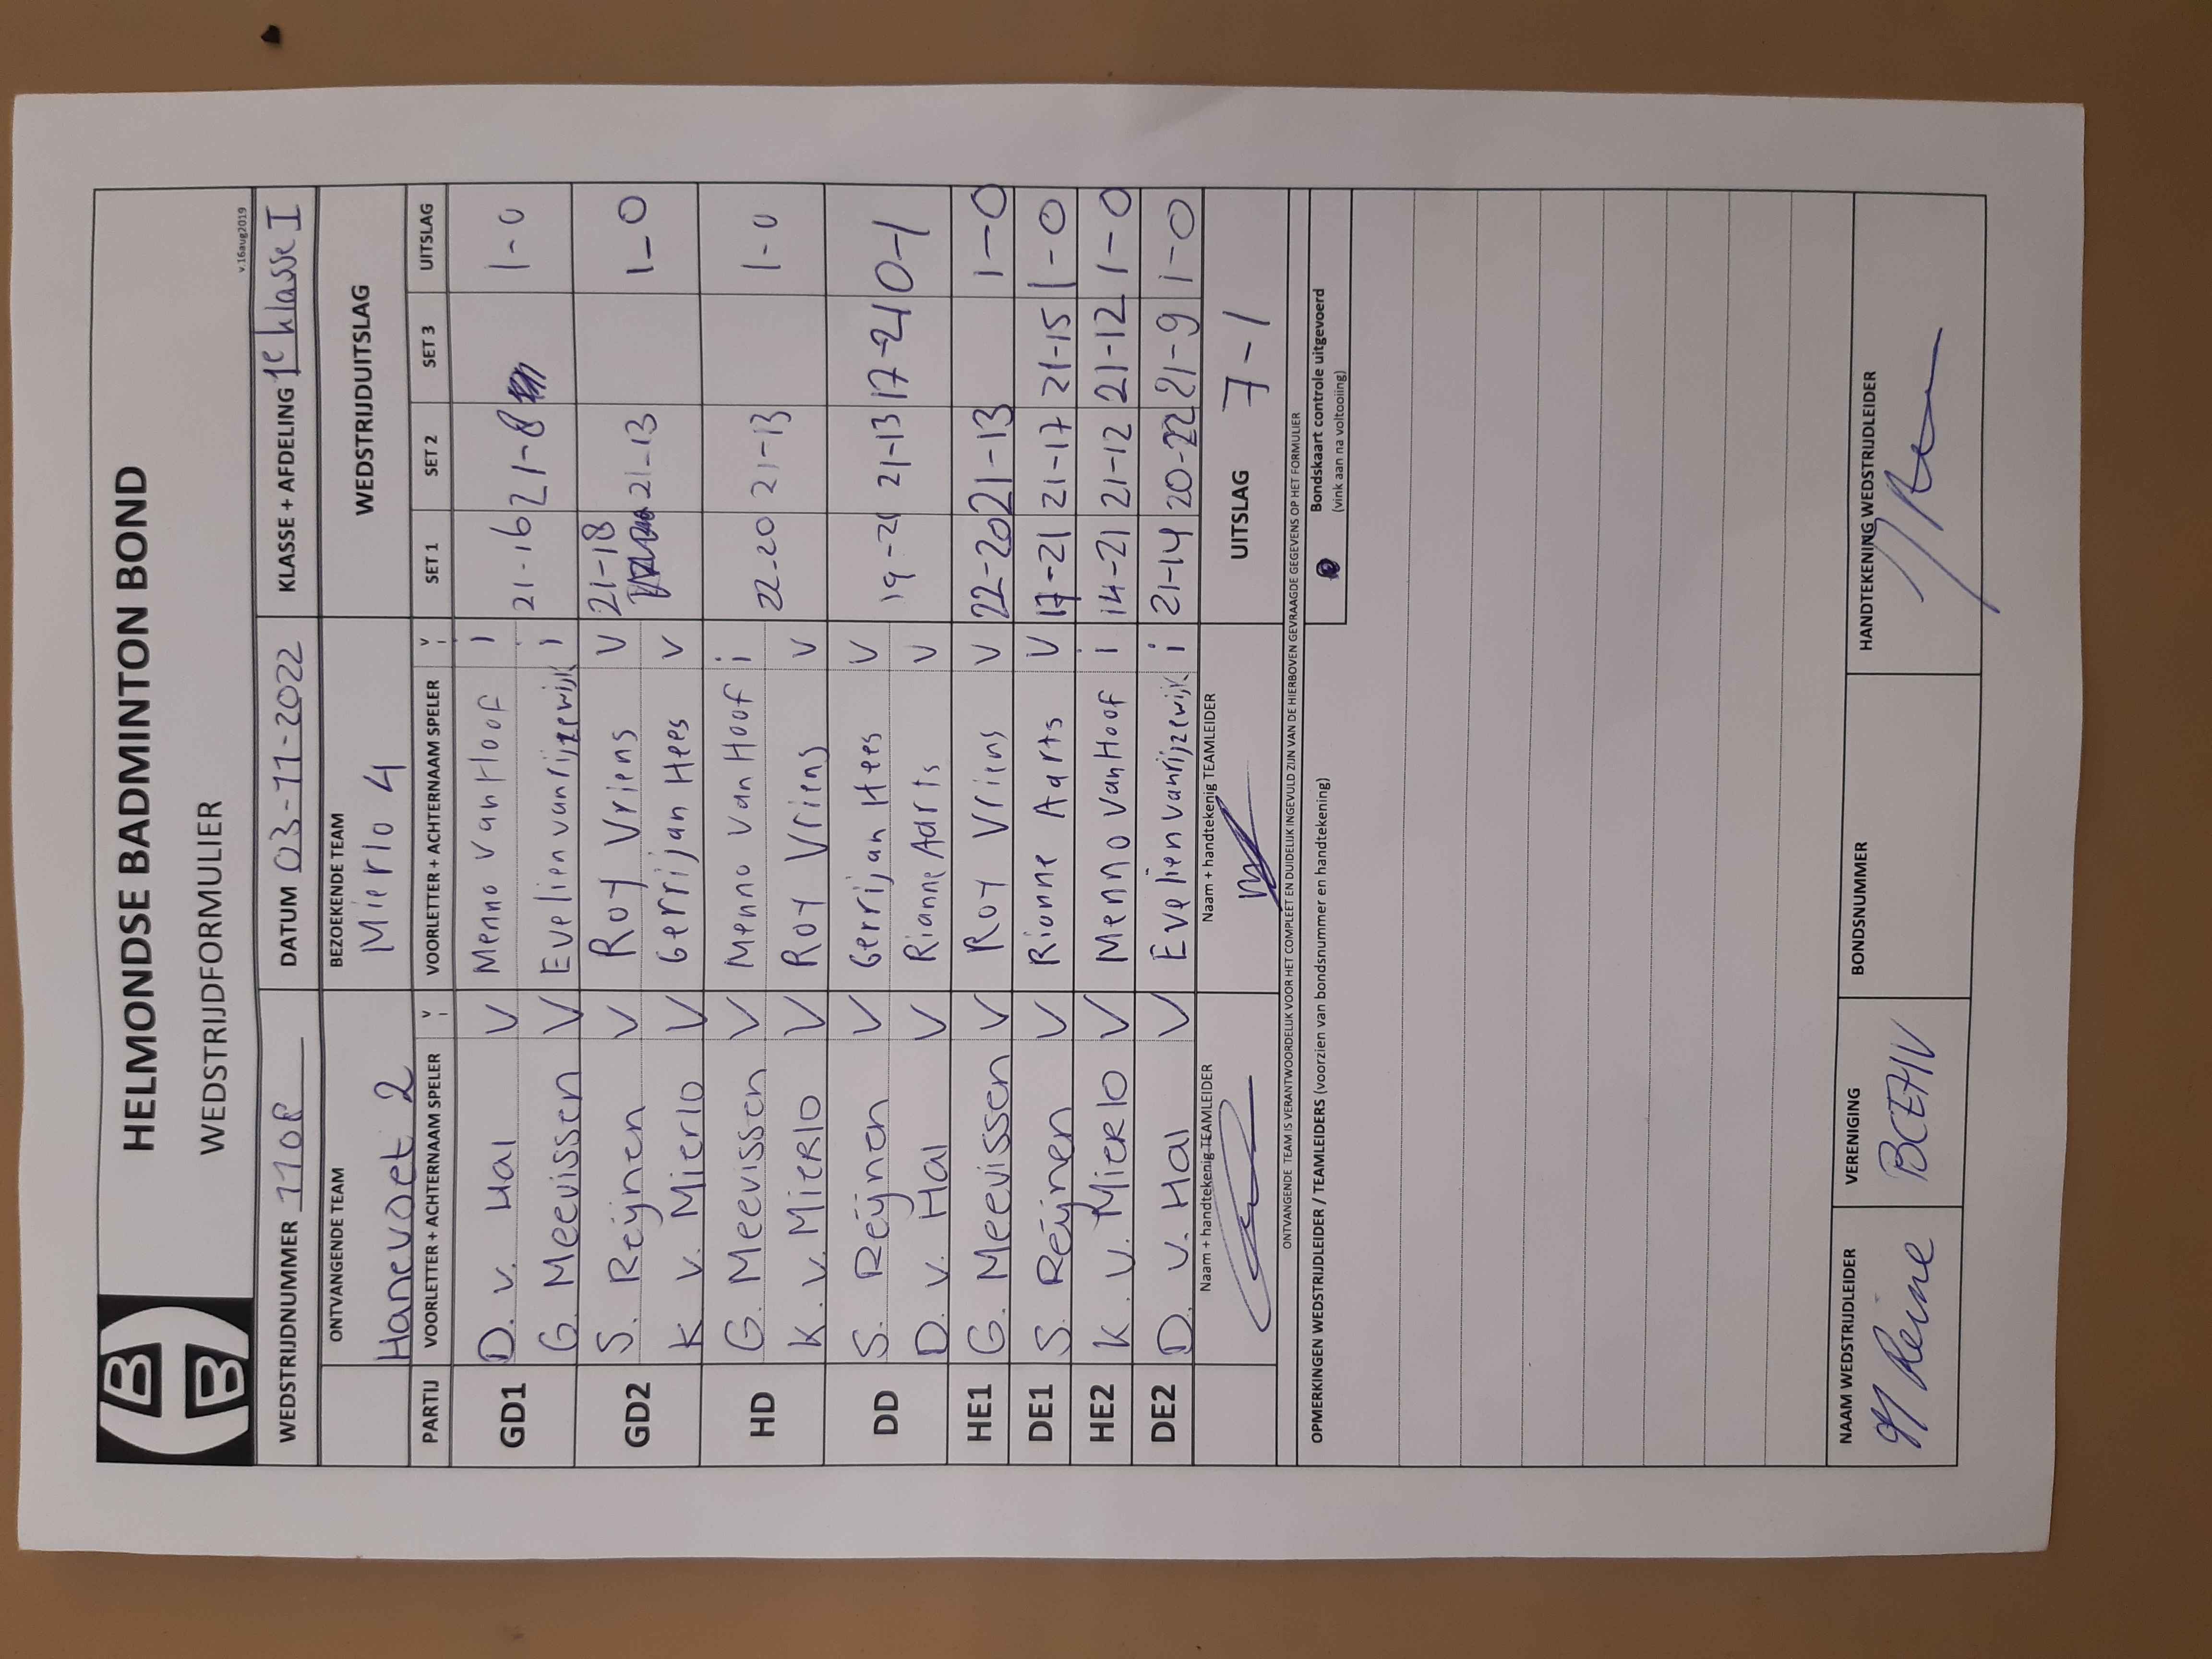 HELMONDSE BADMINTON BOND
WEDSTRIJDFORMULIER
v.16aug2019
WEDSTRIJDNUMMER 1108 DATUM 03-11-2022 KLASSE + AFDELING 1e klasse I
ONTVANGENDE TEAM BEZOEKENDE TEAM WEDSTRIJDUITSLAG
Hanevoet 2 Mierlo 4
PARTIJ VOORLETTER + ACHTERNAAM SPELER V I VOORLETTER + ACHTERNAAM SPELER V I SET 1 SET 2 SET 3 UITSLAG
GD1 D. v. Hal V Menno van Hoof i 21-16 21-8 1-0
G. Meevissen V Evelien van rijzewijk i
GD2 S. Reijnen V Roy Vriens V 21-18 21-13 1-0
K v. Mierlo V Gerrijan Hees V
HD G. Meevissen V Menno van Hoof i 22-20 21-13 1-0
K. v. Mierlo V Roy Vriens V
DD S. Reijnen V Gerrijan Hees V 19-21 21-13 17-21 0-1
D. v. Hal V Rianne Aarts V
HE1 G. Meevissen V Roy Vriens V 22-20 21-13 1-0
DE1 S. Reijnen V Rianne Aarts V 17-21 21-17 21-15 1-0
HE2 K. v. Mierlo V Menno van Hoof i 14-21 21-12 21-12 1-0
DE2 D. v. Hal V Evelien van rijzewijk i 21-14 20-22 21-9 1-0
Naam + handtekenig TEAMLEIDER Naam + handtekenig TEAMLEIDER UITSLAG 7-1
ONTVANGENDE TEAM IS VERANTWOORDELIJK VOOR HET COMPLEET EN DUIDELIJK INGEVULD ZIJN VAN DE HIERBOVEN GEVRAAGDE GEGEVENS OP HET FORMULIER
OPMERKINGEN WEDSTRIJDLEIDER / TEAMLEIDERS (voorzien van bondsnummer en handtekening) Bondskaart controle uitgevoerd
(vink aan na voltooiing)
NAAM WEDSTRIJDLEIDER VERENIGING BONDSNUMMER HANDTEKENING WEDSTRIJDLEIDER
BCEHV